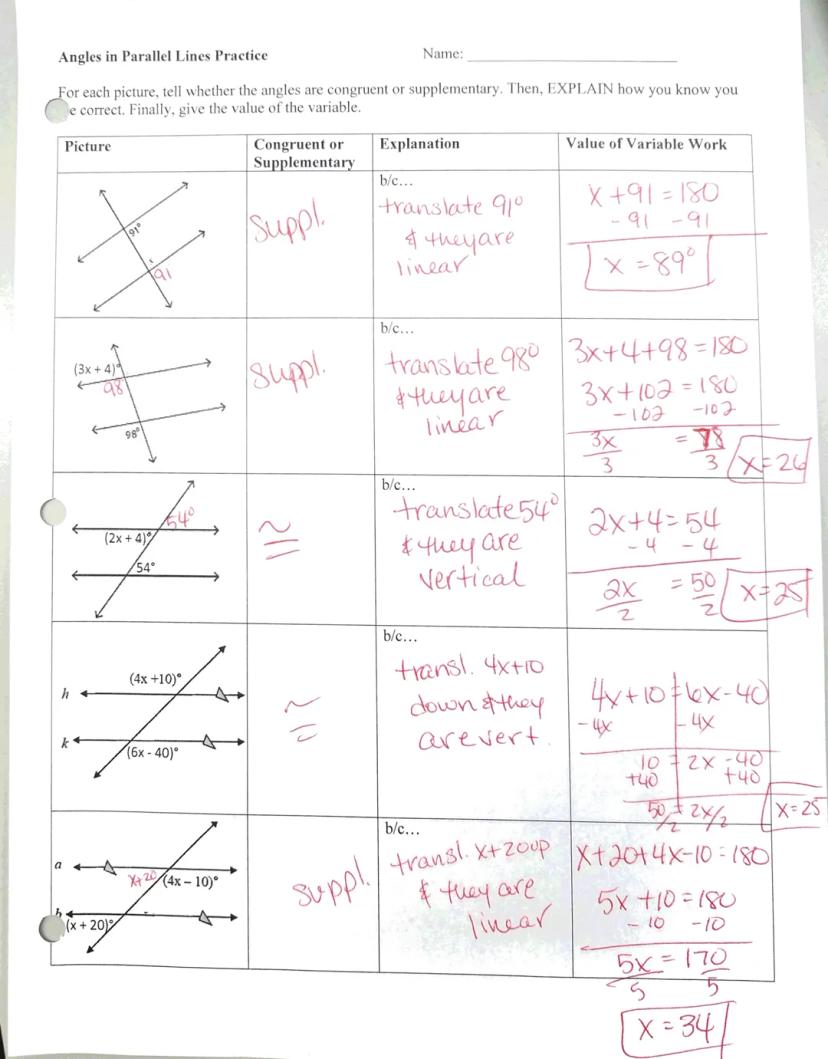 Angles in Parallel Lines Practice Name:
For each picture, tell whether the angles are congruent or supplementary. Then, EXPLAIN how you know you
e correct. Finally, give the value of the variable.
Picture
Congruent or
Supplementary
Explanation
Value of Variable Work
91°
x
91
suppl.
b/c...
translate 91°
& they are
linear
x + 91 = 180
- 91 - 91
x = 89°
(3x + 4)°
98
98°
suppl.
b/c...
translate 98°
& they are
linear
3x + 4 + 98 = 180
3x + 102 = 180
- 102 - 102
3x = 78
3 3
x = 26
54°
(2x + 4)°
54°
≅
b/c...
translate 54°
& they are
vertical
2x + 4 = 54
- 4 - 4
2x = 50
2 2
x = 25
(4x +10)°
h
k
(6x - 40)°
≅
b/c...
transl. 4x+10
down & they
are vert.
4x + 10 = 6x - 40
-4x -4x
10 = 2x - 40
+40 +40
50/2 = 2x/2
x = 25
a
x+20 (4x – 10)°
b
(x + 20)°
suppl.
b/c...
transl. x+20 up
& they are
linear
x + 20 + 4x - 10 = 180
5x + 10 = 180
- 10 - 10
5x = 170
5 5
x = 34